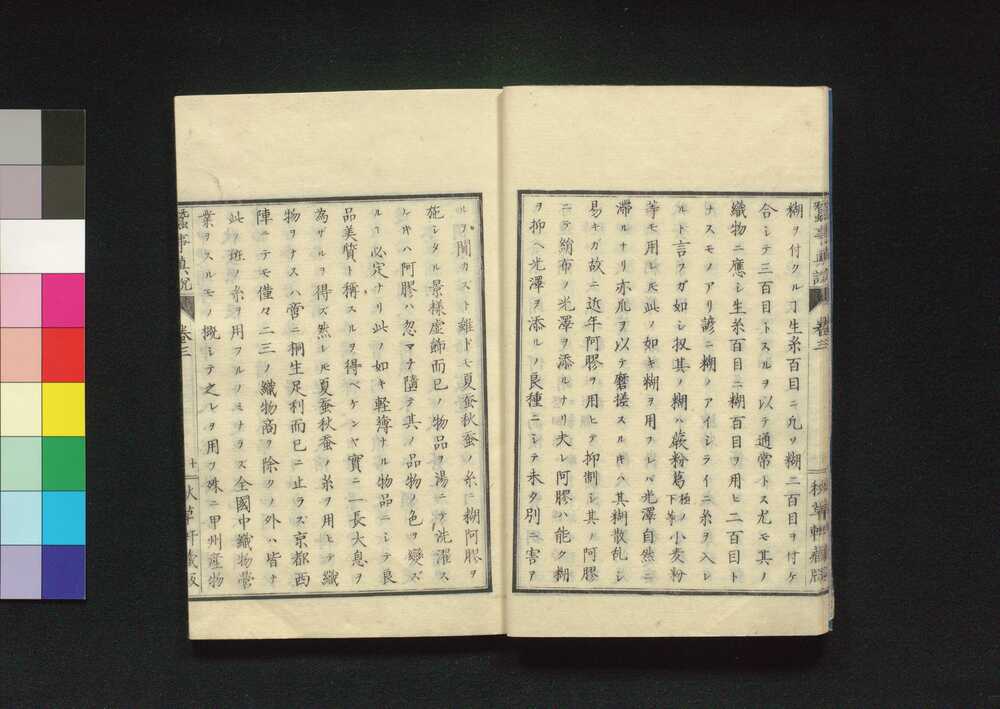 糊ヲ付クルヿ生糸百目ニ凡ソ糊二百目ヲ付ケ
合シテ三百目トスルヲ以テ通常トス尤モ其ノ
織物ニ應シ生糸百目ニ糊百目ヲ用ヒ二百目ト
ナスモノアリ諺ニ糊ノアイシライニ糸ヲ入レ
ルト言フガ如シ扨其ノ糊ハ蕨粉葛極下等ノ小麦粉
等モ用レ𪜈此ノ如キ糊ヲ用フレバ光澤自然ニ
滞ルナリ亦爪ヲ以テ磨搓スルキハ其糊散乱シ
易キガ故ニ近年阿膠ヲ用ヒテ抑制シ其ノ阿膠
ニテ絹布ノ光澤ヲ添ルナリ夫レ阿膠ハ能ク糊
ヲ抑ヘ光澤ヲ添ルノ良種ニシテ未タ別ニ害ヲ
卷三
ルヲ聞カスト雖ドモ夏蚕秋蚕ノ糸ニ糊阿膠ヲ
施シタル景樣虚飾而已ノ物品ヲ湯ニテ洗濯ス
ケキハ阿膠ハ忽マチ隨テ其ノ品物ノ色ヲ變ズ
ルヿ必定ナリ此ノ如キ軽薄ナル物品ニシテ良
品美質ト稱スルヲ得ベケンヤ實ニ一長大息ヲ
為ザルヲ得ズ然レ𪜈夏蚕秋蚕ノ糸ヲ用ヒテ織
物ヲナスハ啻ニ桐生足利而已ニ止ラズ京都西
陣ニテモ僅々二三ノ織物商ヲ除クノ外ハ皆ナ
此ノ班ノ糸ヲ用フルノミナラズ全國中織物營
業ヲスルモノ概シテ之レヲ用フ殊ニ甲州産物
蚕事真説
卷三
十
秋草軒藏版